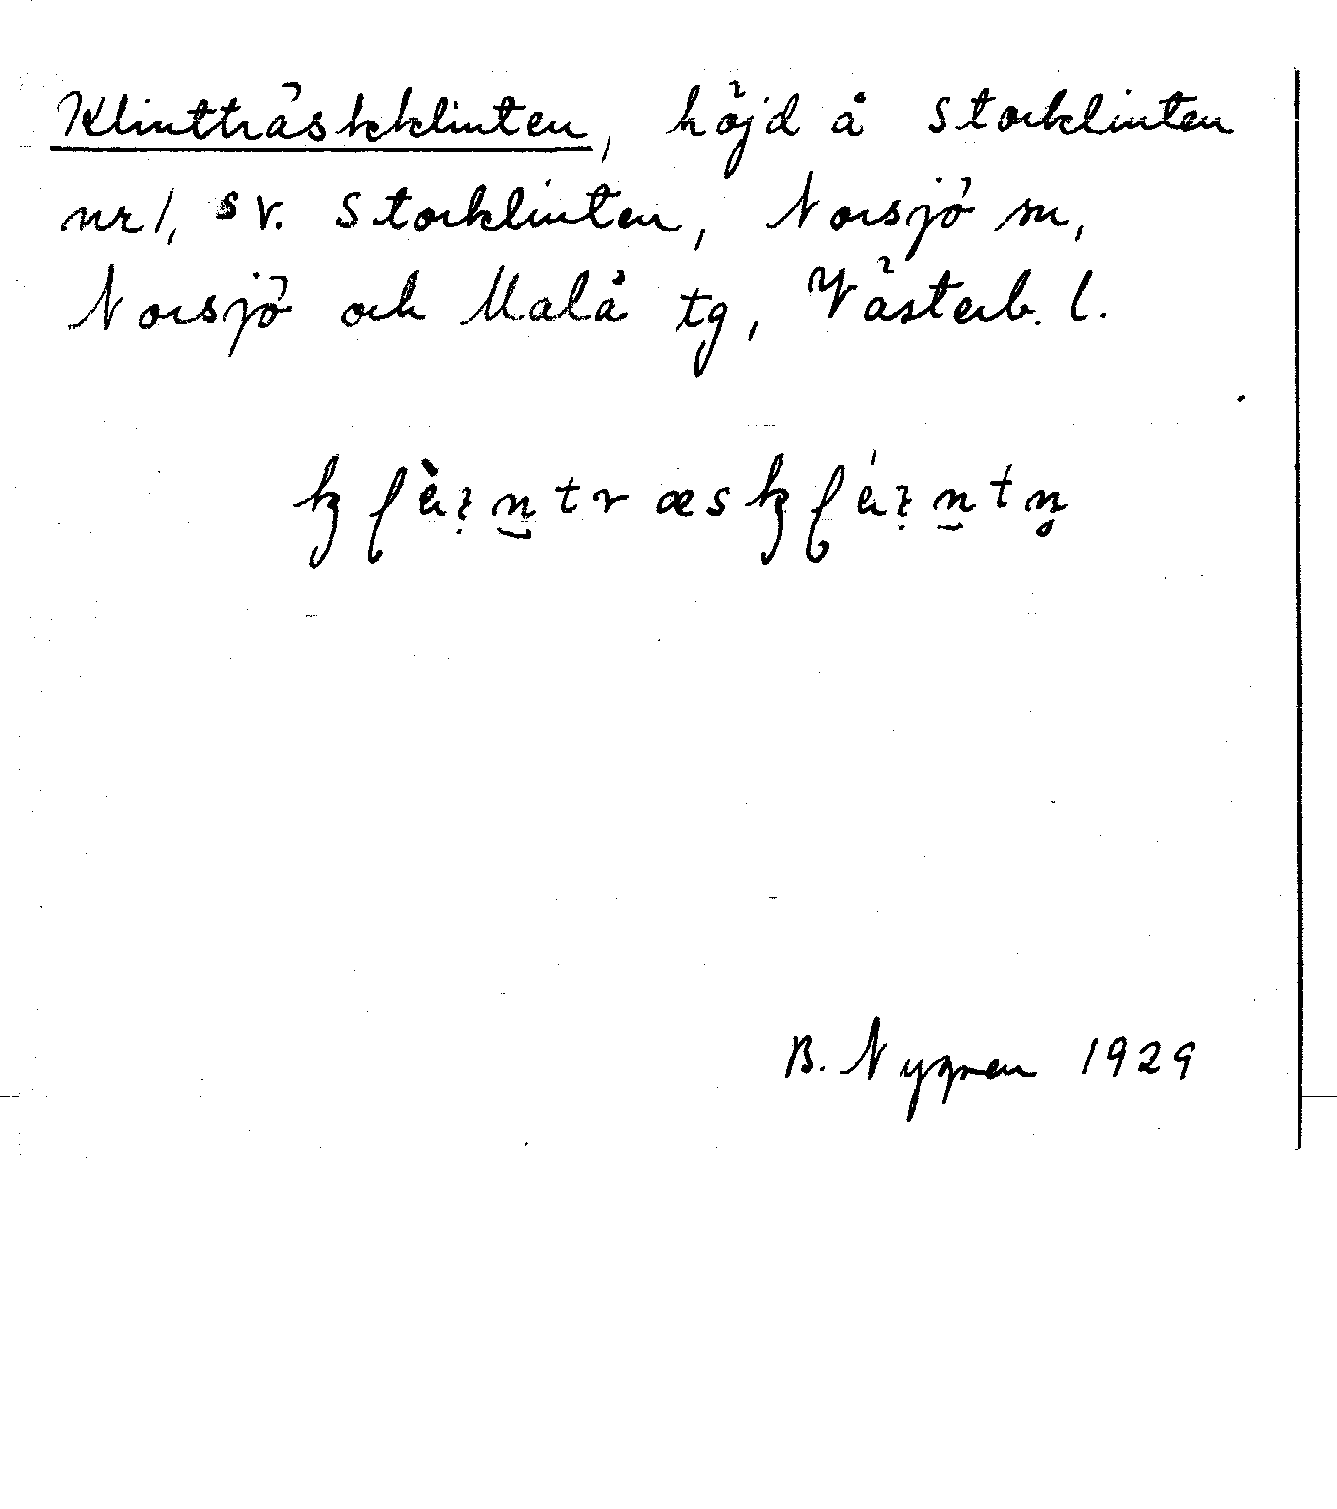 Klintträskklinten, höjd å Storklinten
nr 1, sv. Storklinten, Norsjö sn,
Norsjö och Malå tg, Västerb. l.
B. Nygren 1929